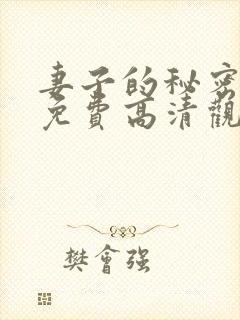 妻子的秘密
免费高清觀
樊會强